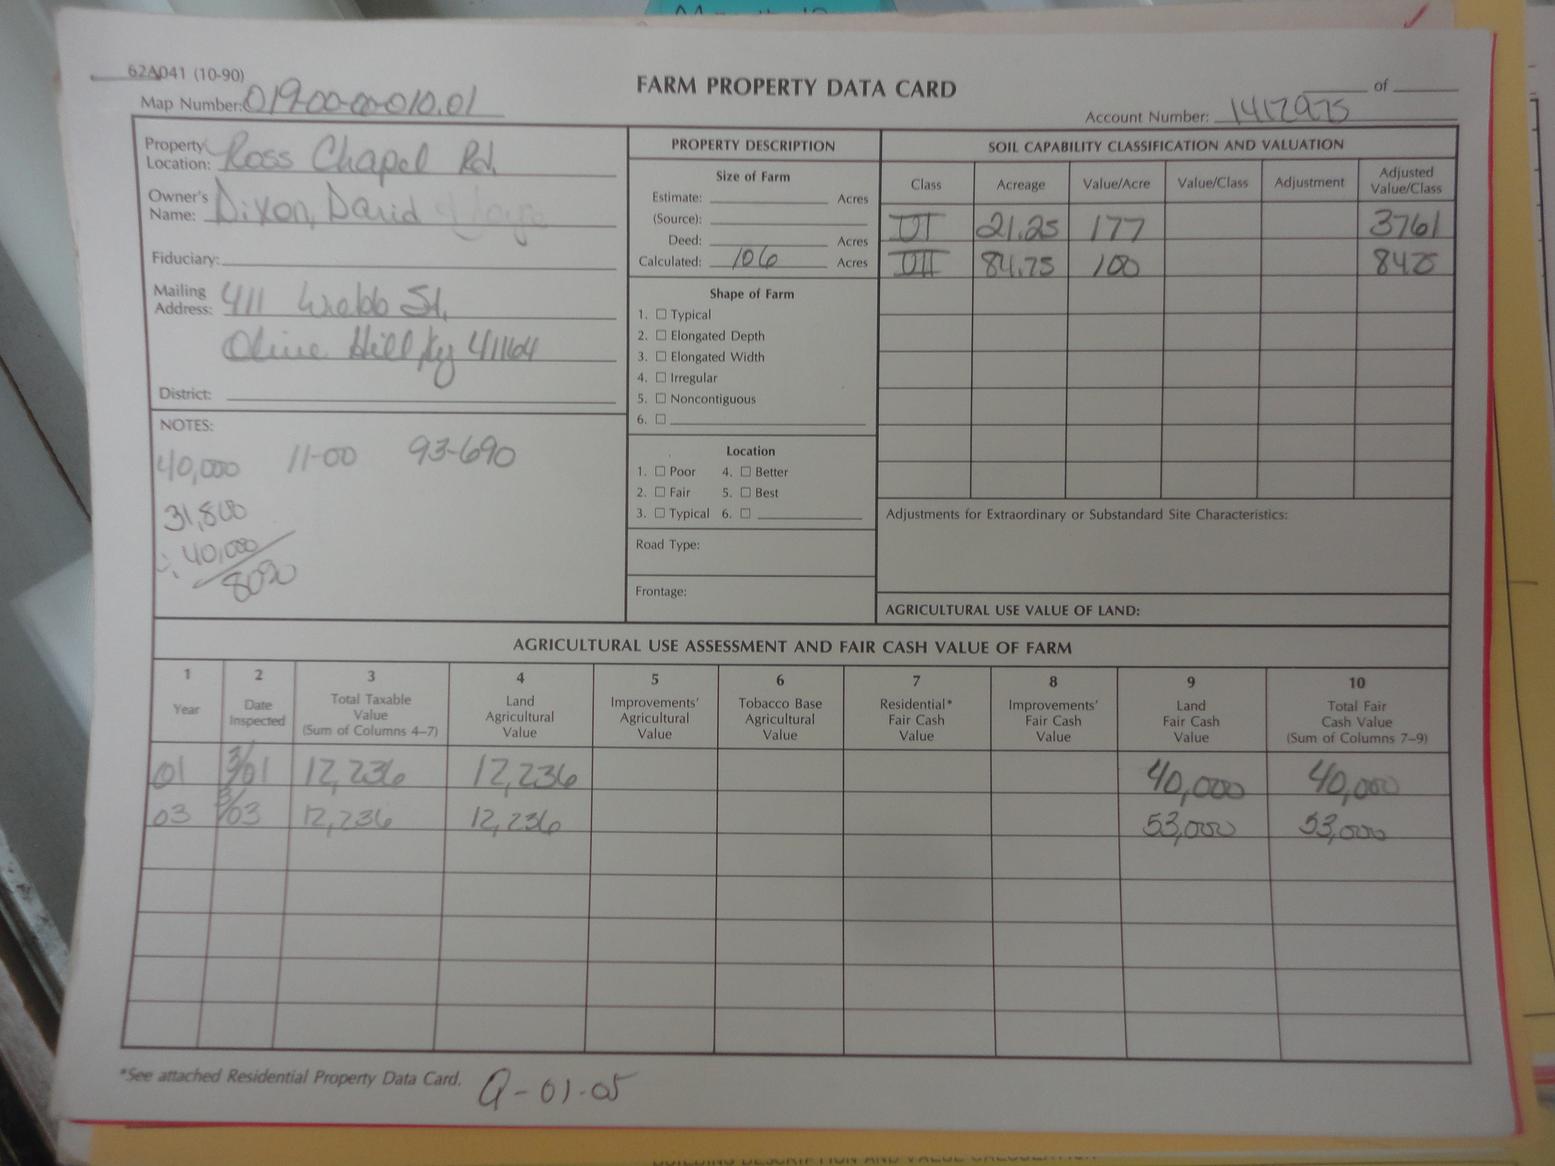 62A041 (10-90)
FARM PROPERTY DATA CARD
of
Map Number: 019-00-00-010.01
Account Number: 1417975
Property Location: Ross Chapel Rd.
Owner's Name: Dixon, David
Fiduciary:
Mailing Address: 411 Webb St.
Olive Hill, Ky 41164
District:
NOTES:
40,000 11-00 93-690
31,800
40,000
PROPERTY DESCRIPTION
Size of Farm
Estimate: Acres
(Source):
Deed: Acres
Calculated: 106 Acres
Shape of Farm
1. □ Typical
2. □ Elongated Depth
3. □ Elongated Width
4. □ Irregular
5. □ Noncontiguous
6. □
Location
1. □ Poor 4. □ Better
2. □ Fair 5. □ Best
3. □ Typical 6. □
Road Type:
Frontage:
SOIL CAPABILITY CLASSIFICATION AND VALUATION
Class Acreage Value/Acre Value/Class Adjustment Adjusted Value/Class
VI 21.25 177 3761
VII 84.75 100 8475
Adjustments for Extraordinary or Substandard Site Characteristics:
AGRICULTURAL USE VALUE OF LAND:
AGRICULTURAL USE ASSESSMENT AND FAIR CASH VALUE OF FARM
1 2 3 4 5 6 7 8 9 10
Year Date Inspected Total Taxable Value (Sum of Columns 4–7) Land Agricultural Value Improvements' Agricultural Value Tobacco Base Agricultural Value Residential* Fair Cash Value Improvements' Fair Cash Value Land Fair Cash Value Total Fair Cash Value (Sum of Columns 7–9)
01 3/01 12,236 12,236 40,000 40,000
03 3/03 12,236 12,236 53,000 53,000
*See attached Residential Property Data Card.
Q-01-05